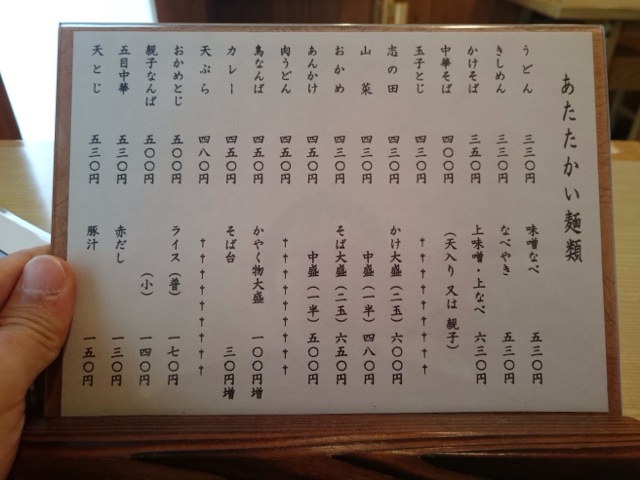 あたたかい麺類
うどん 三三〇円
きしめん 三三〇円
かけそば 三五〇円
中華そば 四〇〇円
玉子とじ 四三〇円
志の田 四三〇円
山菜 四三〇円
おかめ 四三〇円
あんかけ 四五〇円
肉うどん 四五〇円
鳥なんば 四五〇円
カレー 四五〇円
天ぷら 四八〇円
おかめとじ 五〇〇円
親子なんば 五〇〇円
五目中華 五三〇円
天とじ 五三〇円
味噌なべ 五三〇円
なべやき 五三〇円
上味噌・上なべ 六三〇円
(天入り 又は 親子)
††††††††
かけ大盛(二玉) 六〇〇円
中盛(一半) 四八〇円
そば大盛(二玉) 六五〇円
中盛(一半) 五〇〇円
††††††††
かやく物大盛 一〇〇円増
そば台 三〇円増
††††††††
ライス(普) 一七〇円
(小) 一四〇円
赤だし 一三〇円
豚汁 一五〇円